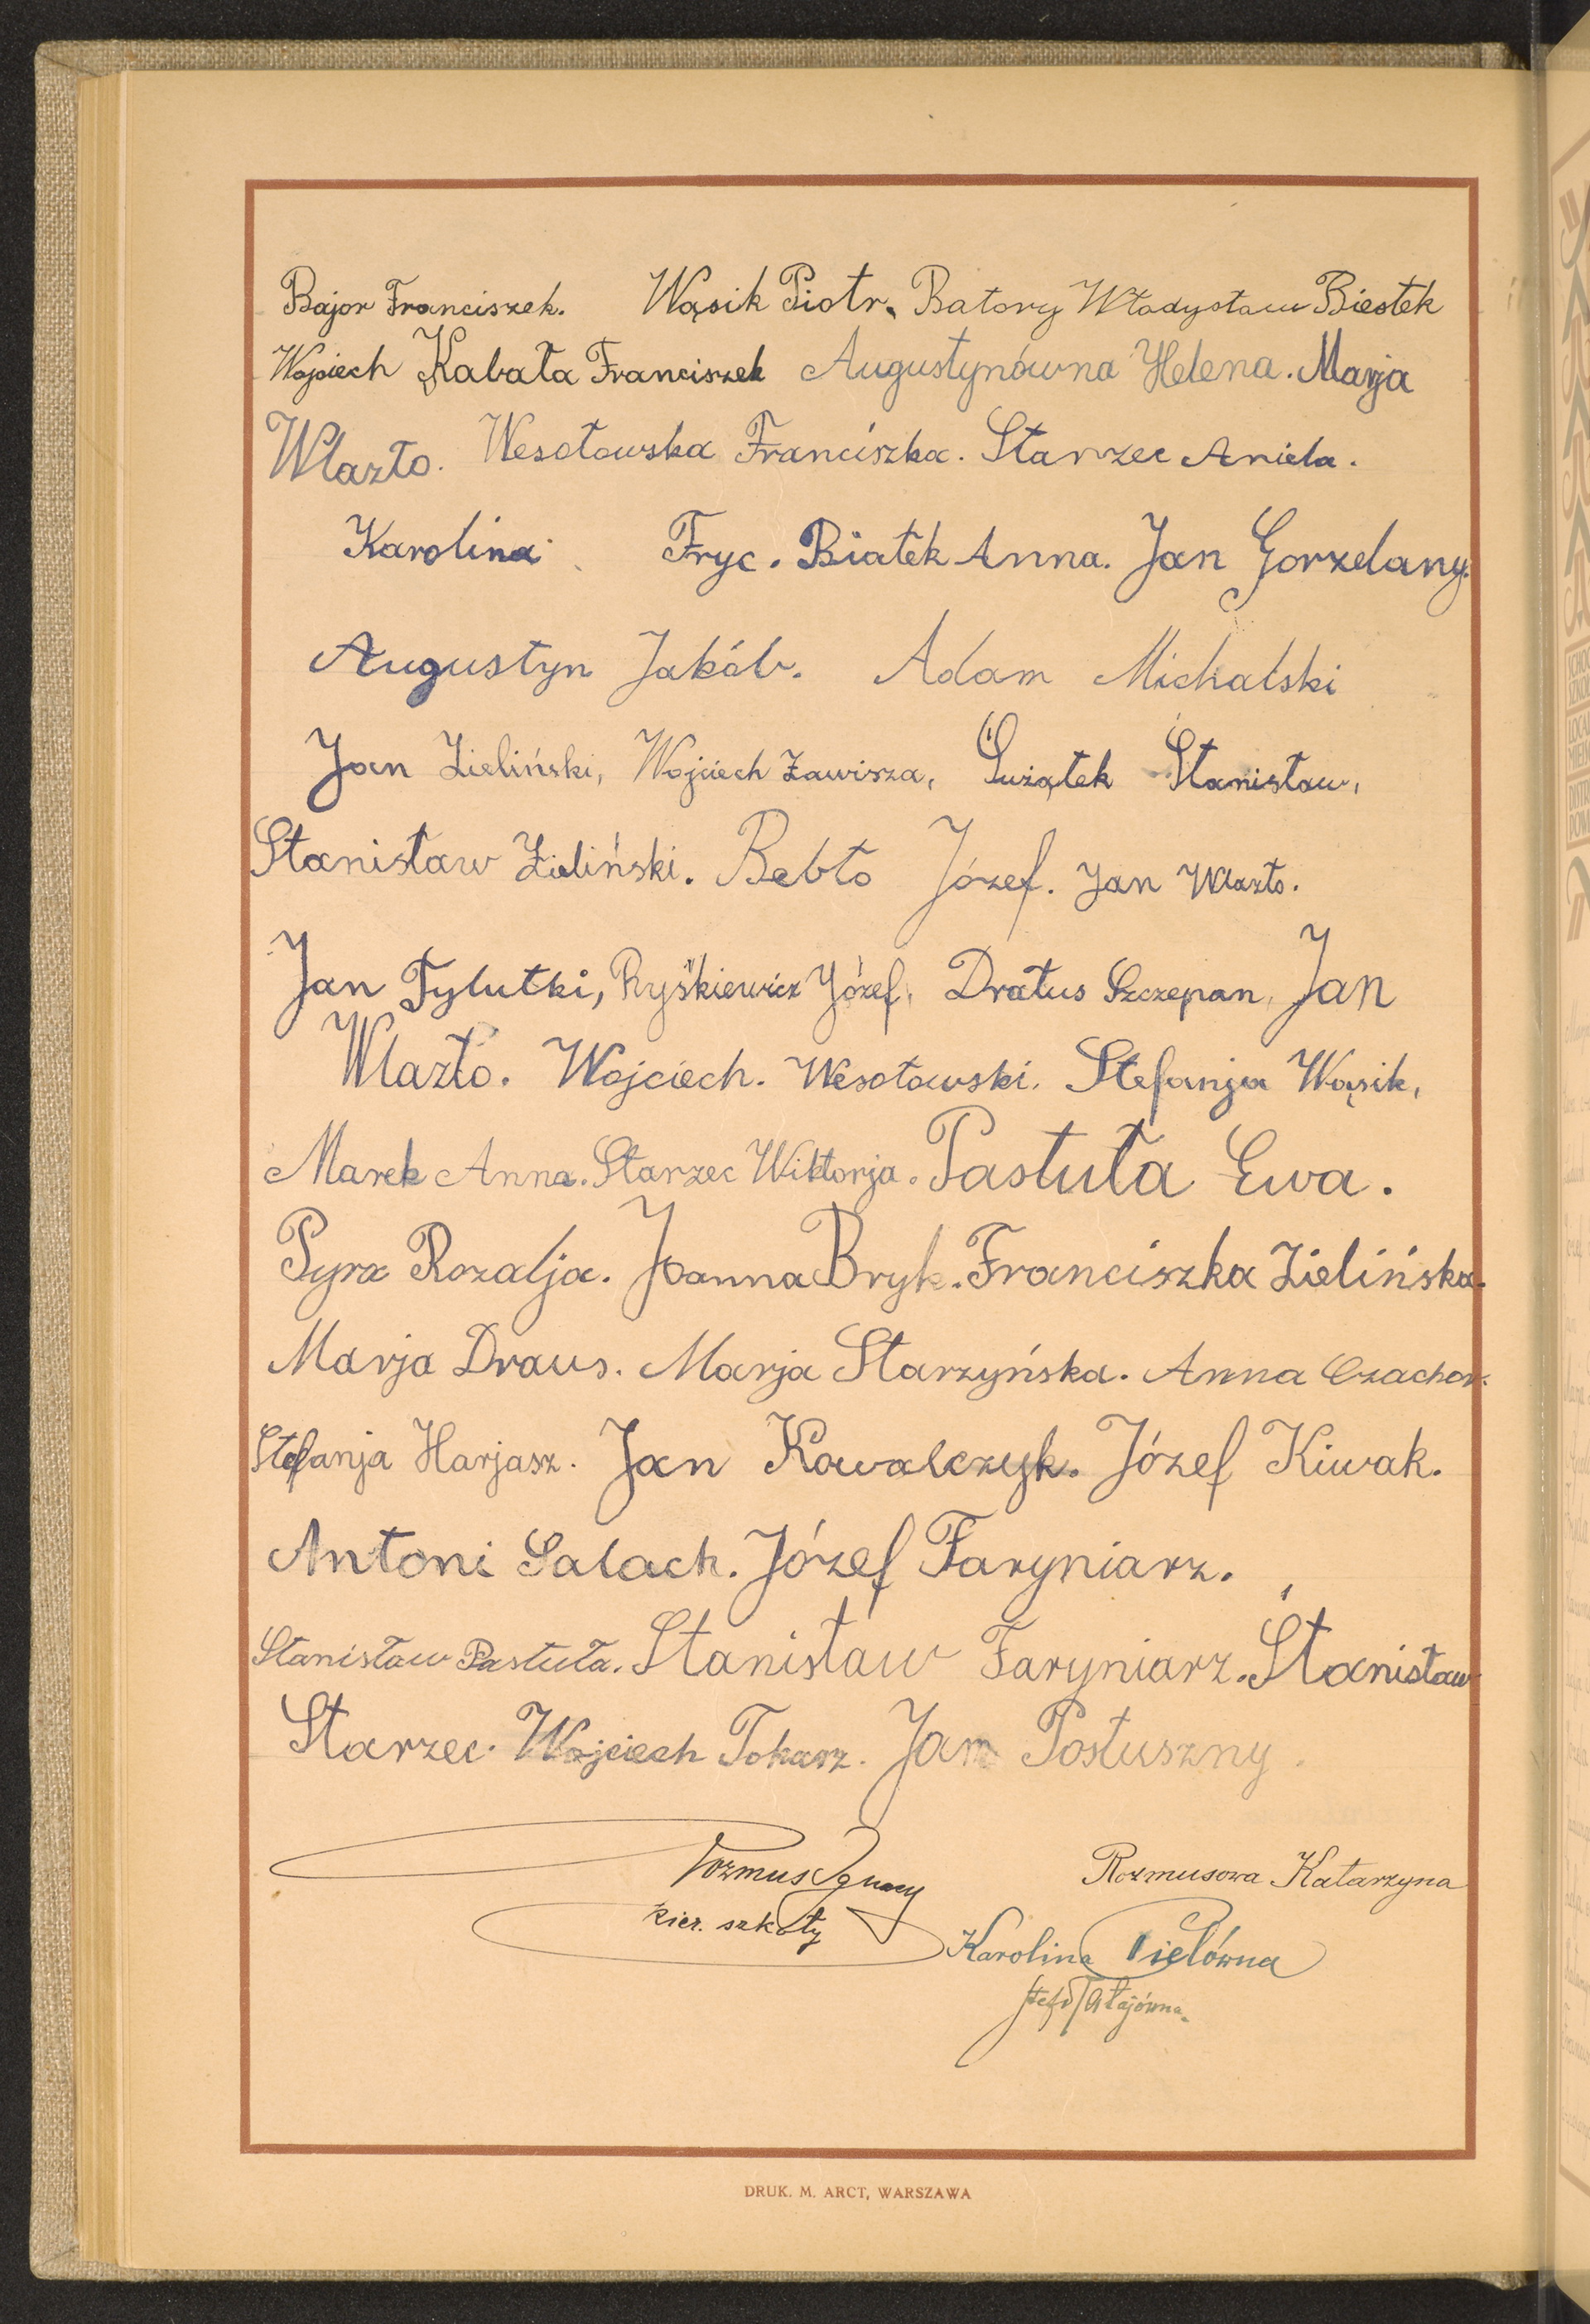 Bajor Franciszek. Wąsik Piotr. Batory Władysław Biestek
Wojciech Kabała Franciszek Augustynówna Helena. Marja
Wlazło. Wesołowska Franciszka. Starzec Aniela.
Karolina Fryc. Białek Anna. Jan Gorzelany.
Augustyn Jakób. Adam Michalski
Jan Zieliński, Wojciech Zawisza, Stanisław,
Stanisław Zieliński. Bebło Józef. Jan Wlazło.
Jan Tylutki, Ryśkiewicz Józef, Dratus Szczepan, Jan
Wlazło. Wojciech. Wesołowski. Stefanja Wąsik,
Marek Anna. Starzec Wiktorja. Pastuła Ewa.
Pyra Rozalja. Joanna Bryk. Franciszka Zielińska.
Marja Draus. Marja Starzyńska. Anna Czachor.
Stefanja Harjasz. Jan Kowalczyk. Józef Kiwak.
Antoni Salach. Józef Faryniarz.
Stanisław Pastuła. Stanisław Faryniarz. Stanisław
Starzec. Wojciech Tokarz. Jan Posłuszny.
Rozmus Ignacy Rozmusowa Katarzyna
kier. szkoły
Karolina Pielówna
DRUK. M. ARCT, WARSZAWA